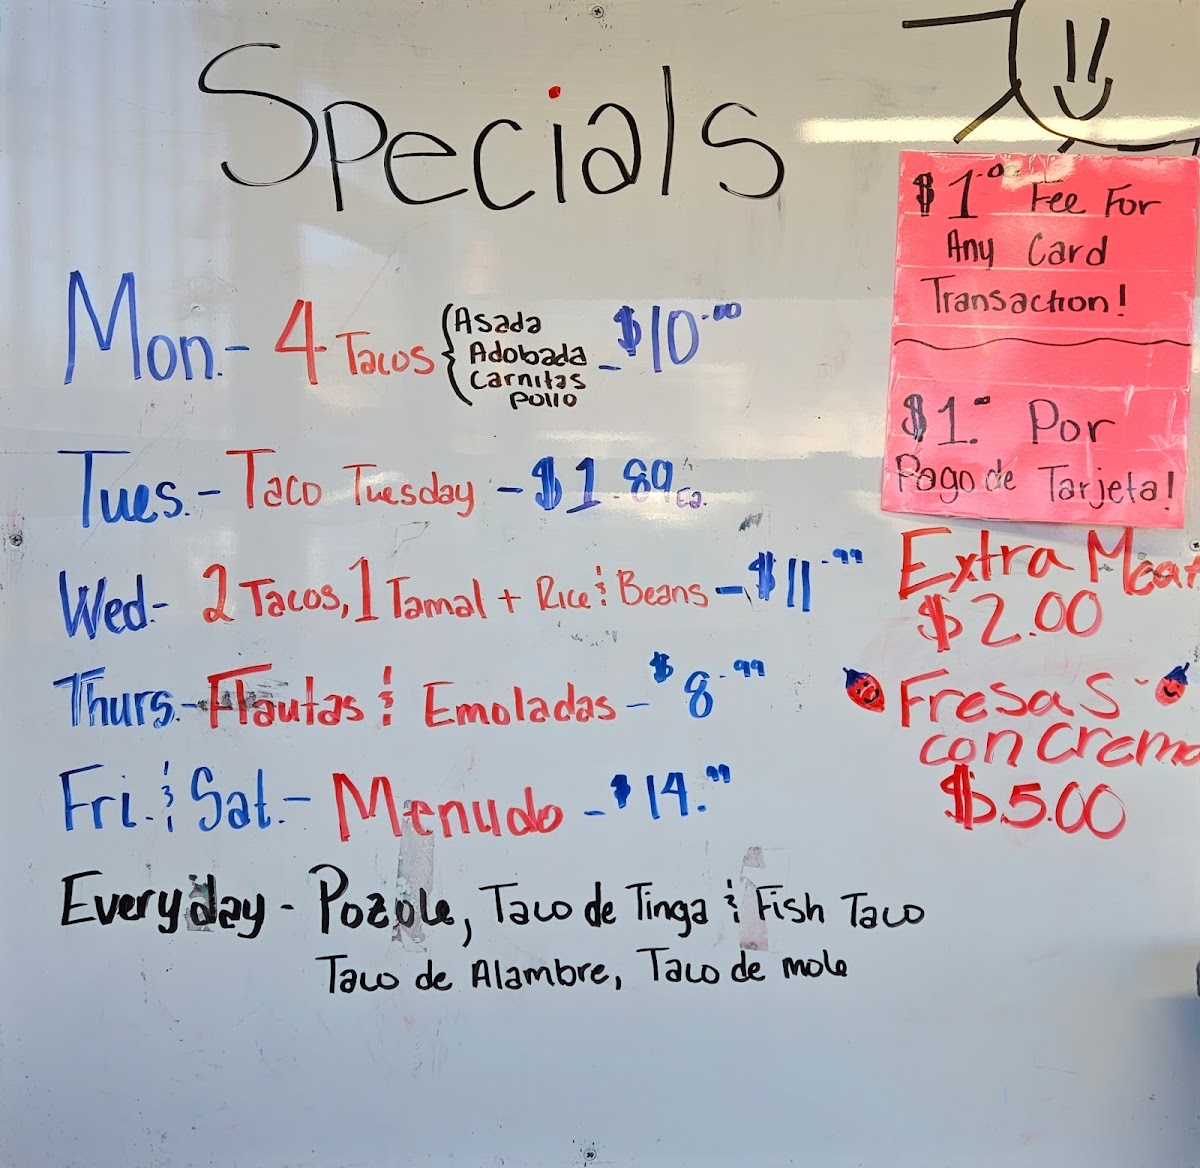 Specials
Mon.- 4 Tacos { Asada
Adobada
Carnitas
Pollo - $10.00
Tues.- Taco Tuesday - $1.89 Ea.
Wed- 2 Tacos, 1 Tamal + Rice & Beans - $11.99
Thurs.- Flautas & Emoladas - $8.99
Fri. & Sat.- Menudo - $14.99
Everyday - Pozole, Taco de Tinga & Fish Taco
Taco de Alambre, Taco de mole
$1.00 Fee For
Any Card
Transaction!
$1.00 Por
Pago de Tarjeta!
Extra Meat
$2.00
Fresas
con Crema
$5.00